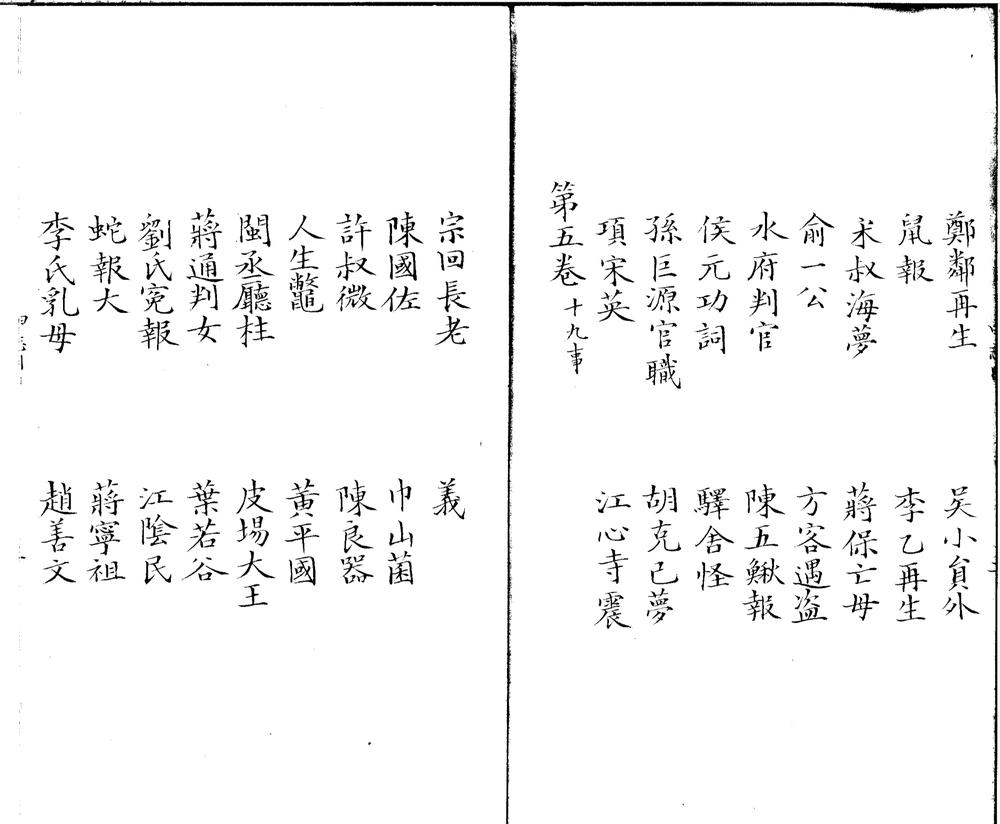 鄭鄰再生　吴小員外
鼠報　李乙再生
叔海夢　蔣保亡母
俞一公　方客遇盗
水府判官　陳五鰍報
侯元功詞　驛舍怪
孫巨源官職　胡克己夢
項宋英　江心寺震
第五卷十九事
宗回長老　義
陳國佐　巾山菌
許叔微　陳良器
人生鼈　黄平國
閩丞廳柱　皮場大王
蔣通判女　葉若谷
劉氏冤報　江陰民
蛇報犬　蔣寧祖
李氏乳母　趙善文